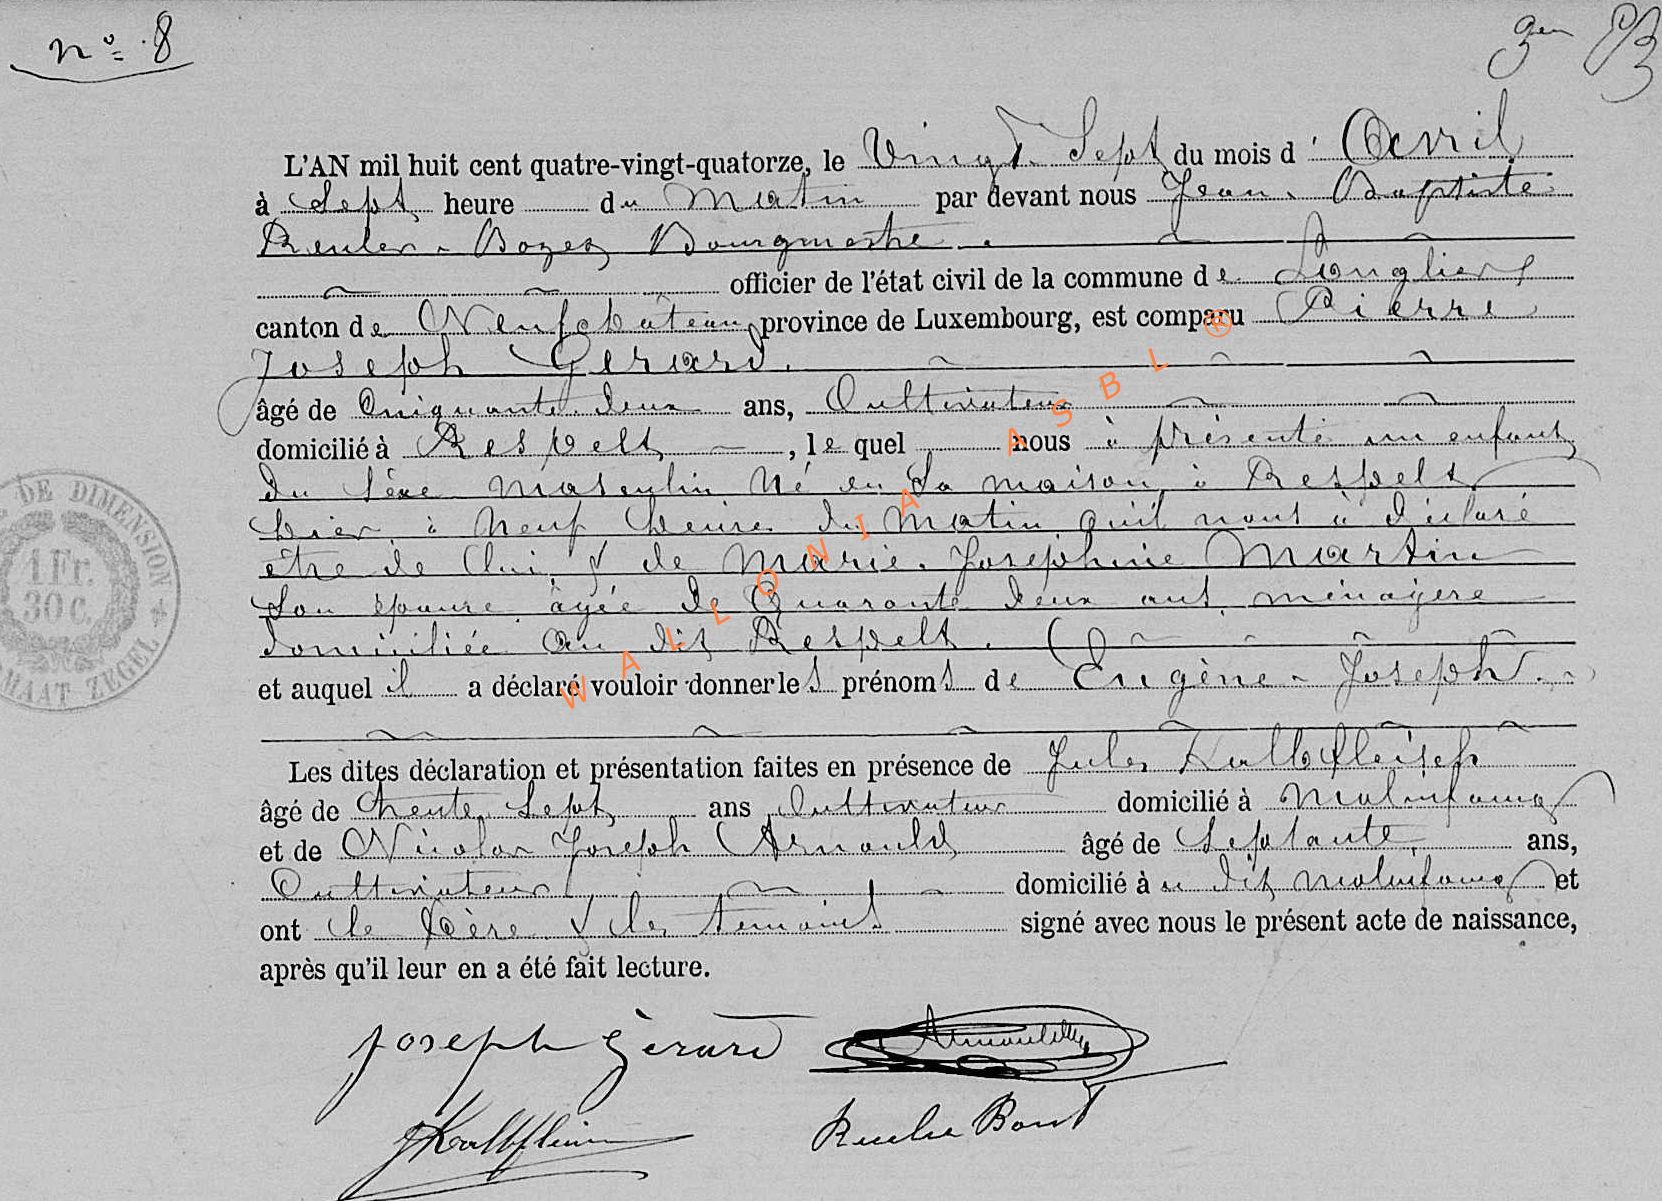 n° 8
L'AN mil huit cent quatre-vingt-quatorze, le Vingt Sept du mois d' Avril
à Sept heure du Matin par devant nous Jean Baptiste
Reuler Bourgmestre
officier de l'état civil de la commune de Longlier
canton de Neufchâteau province de Luxembourg, est comparu Pierre
Joseph Gérard.
âgé de Cinquante deux ans, Cultivateur
domicilié à Respelt, le quel nous à présenté un enfant
du sèxe masculin Né en Sa maison à Respelt
hier à Neuf heures du Matin qu'il nous à déclaré
être de lui & de Marie Joséphine Martin
Son épouse âgée de Quarante deux ans, ménagère
domiciliée au dit Respelt.
et auquel il a déclaré vouloir donner les prénoms de Eugène Joseph.
Les dites déclaration et présentation faites en présence de Jules Kalbfleisch
âgé de trente Sept ans Cultivateur domicilié à Molinfaing
et de Nicolas Joseph Arnould âgé de Septante ans,
Cultivateur domicilié au dit Molinfaing et
ont le Père & les témoins signé avec nous le présent acte de naissance,
après qu'il leur en a été fait lecture.
Joseph Gérard Arnould
J Kalbfleisch
DE DIMENSION
1 Fr.
30 c.
MAAT ZEGEL
WALLONIA ASBL ®